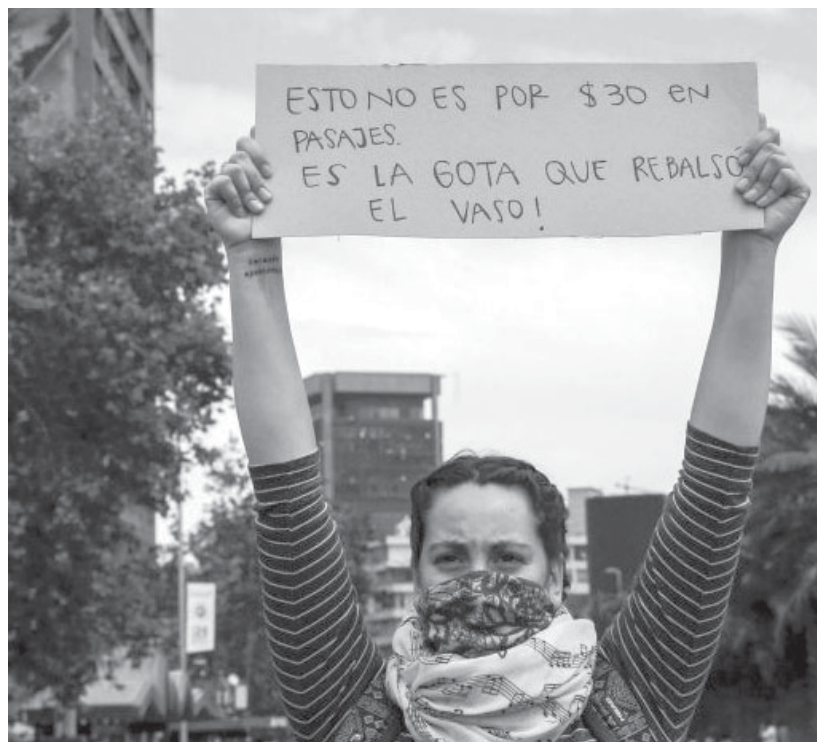 ESTO NO ES POR $30 EN
PASAJES.
ES LA GOTA QUE REBALSÓ
EL VASO!